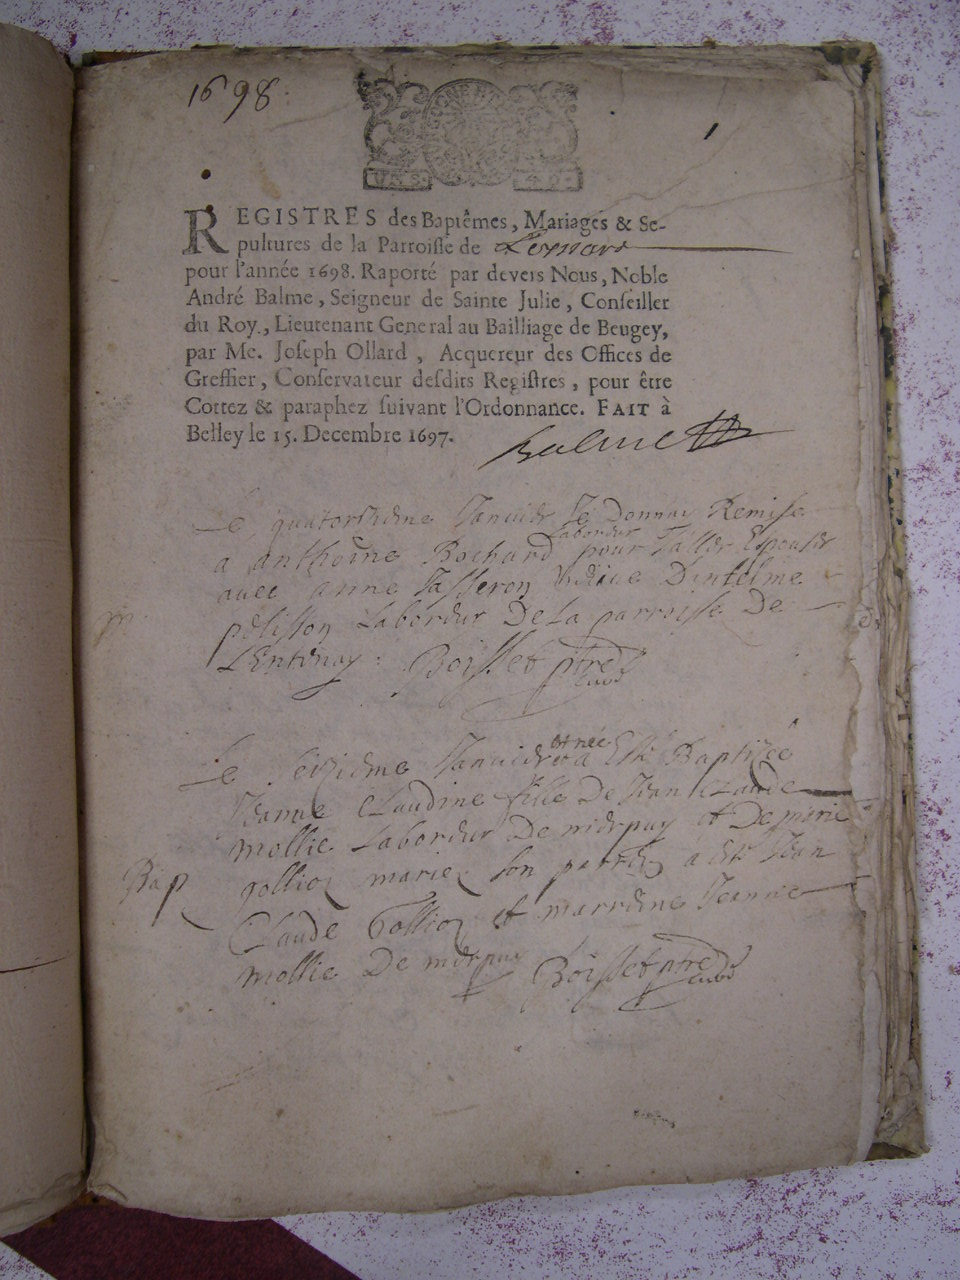 1698
1
UN S. 4 D.
REGISTRES des Baptêmes, Mariages & Se-
pultures de la Parroisse de Leynard
pour l'année 1698. Raporté par devers Nous, Noble
André Balme, Seigneur de Sainte Julie, Conseiller
du Roy, Lieutenant General au Bailliage de Beugey,
par Me. Joseph Ollard, Acquereur des Offices de
Greffier, Conservateur desdits Registres, pour être
Cottez & paraphez suivant l'Ordonnance. FAIT à
Belley le 15. Decembre 1697.
Balme
Le quatorzieme Janvier Je Donnay Remise
labordur
a anthoine Bochard pour Laller Espouser
avec anne Dantelme
pelisson Labordur De La parroisse De
Lentenay Boisset ptre
curé
et née
Le sezieme Janvier a Esté Baptizée
Jeanne Claudine fille De Jean Claude
mollie Labordur De mierpuy et De marie
gollioz mariez son parrein a esté Jean
Bap
Claude Gollioz et marreine Jeanne
mollie De mierpuy Boisset ptre
curé